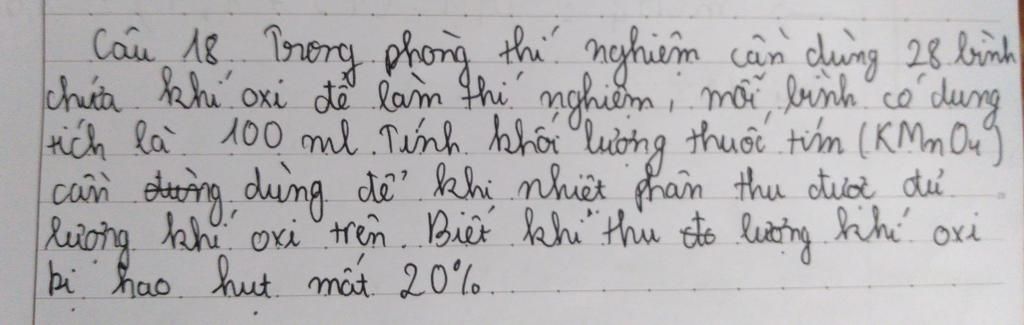 Câu 18 Trong phòng thí nghiệm cần dùng 28 bình
chứa khí oxi để làm thí nghiệm, mỗi bình có dung
tích là 100 ml. Tính khối lượng thuốc tím (KMnO4)
cần dùng để khi nhiệt phân thu được đủ
lượng khí oxi trên. Biết khí thu lượng khí oxi
bị hao hụt mất 20%.